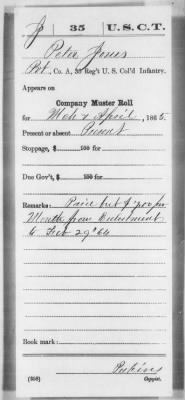 J 35 U.S.C.T.
Peter Jones
Pvt, Co. A, 35 Reg't U. S. Col'd Infantry.
Appears on
Company Muster Roll
for Mch & April, 1865.
Present or absent Present
Stoppage, $ 100 for
Due Gov't, $ 100 for
Remarks: Paid but $7.00 per
Month from Enlistment
to Feb 29" 64
Book mark:
Perkins
(358) Copyist.